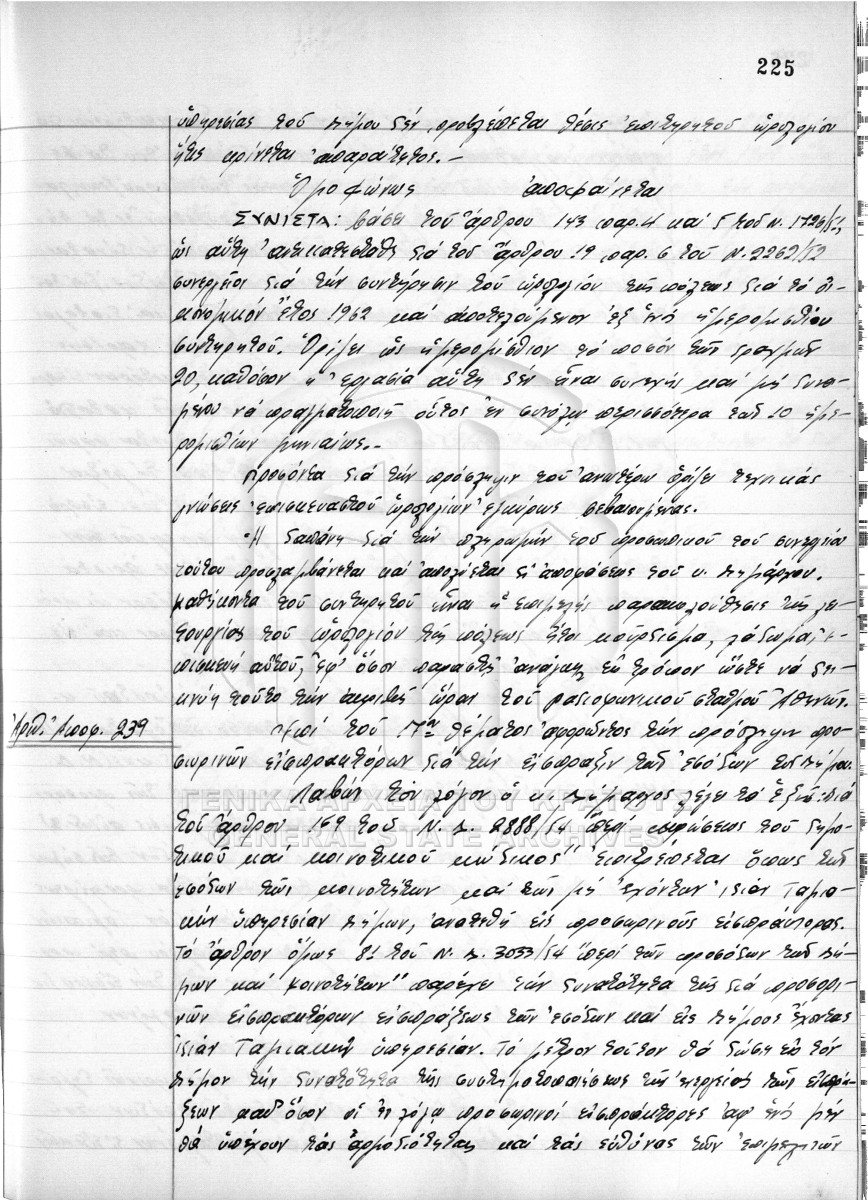 225
ὑπηρεσίας τοῦ Δήμου δέν προβλέπεται θέσις ἐπιτηρητοῦ ὡρολογίου
ἥτις κρίνεται ἀπαραίτητος.—
Ὁμοφώνως ἀποφαίνεται
ΣΥΝΙΣΤΑ: βάσει τοῦ ἄρθρου 143 παρ. 4 καί 5 τοῦ Ν. 1726/51
ὡς αὕτη ἀντικατεστάθη διά τοῦ ἄρθρου 19 παρ. 6 τοῦ Ν. 2262/52
συνεργεῖον διά τήν συντήρησιν τοῦ ὡρολογίου τῆς πόλεως διά τό οἰ-
κονομικόν ἔτος 1962 καί ἀποτελούμενον ἐξ ἑνός ἡμερομισθίου
συντηρητοῦ. Ὁρίζει ὡς ἡμερομίσθιον τό ποσόν τῶν δραχμῶν
20, καθόσον ἡ ἐργασία αὕτη δέν εἶναι συνεχής καί μή δυνα-
μένου νά πραγματοποιῇ οὗτος ἐν συνόλῳ περισσότερα τῶν 10 ἡμε-
ρομισθίων μηνιαίως.—
Προσόντα διά τήν πρόσληψιν τοῦ ἀνωτέρω ὁρίζει τεχνικάς
γνώσεις ἐπισκευαστοῦ ὡρολογίων ἐγκύρως βεβαιουμένας.
Ἡ δαπάνη διά τήν πληρωμήν τοῦ προσωπικοῦ τοῦ συνεργείου
τούτου προσλαμβάνεται καί ἀπολύεται δι' ἀποφάσεως τοῦ κ. Δημάρχου.
Καθήκοντα τοῦ συντηρητοῦ εἶναι ἡ ἐπιμελής παρακολούθησις τῆς λει-
τουργίας τοῦ ὡρολογίου τῆς πόλεως ἤτοι κούρδισμα, λάδωμα, ἐ-
πισκευή αὐτοῦ, ἐφ' ὅσον παραστῇ ἀνάγκη ἐν τρόπον ὥστε νά δει-
κνύῃ τοῦτο τήν ἀκριβῆ ὥραν τοῦ ραδιοφωνικοῦ σταθμοῦ Ἀθηνῶν.
Ἀριθ. Ἀποφ. 239
Ἐπί τοῦ 17ου θέματος ἀφορῶντος τήν πρόσληψιν προ-
σωρινῶν εἰσπρακτόρων διά τήν εἴσπραξιν τῶν ἐσόδων τοῦ Δήμου.
Λαβών τόν λόγον ὁ κ. Δήμαρχος λέγει τά ἑξῆς: Διά
τοῦ ἄρθρου 159 τοῦ Ν. Δ. 2888/54 "περί κυρώσεως τοῦ δημο-
τικοῦ καί κοινοτικοῦ κώδικος" ἐπιτρέπεται ὅπως τῶν
ἐσόδων τῶν κοινοτήτων καί τῶν μή ἐχόντων ἰδίαν Ταμια-
κήν ὑπηρεσίαν Δήμων, ἀνατεθῇ εἰς προσωρινούς εἰσπράκτορας.
Τό ἄρθρον ὅμως 81 τοῦ Ν. Δ. 3033/54 "περί τῶν προσόδων τῶν Δή-
μων καί Κοινοτήτων" παρέχει τήν δυνατότητα τῆς διά προσωρι-
νῶν εἰσπρακτόρων εἰσπράξεως τῶν ἐσόδων καί εἰς Δήμους ἔχοντας
ἰδίαν Ταμιακήν ὑπηρεσίαν. Τό μέτρον τοῦτον θά δώσῃ εἰς τόν
Δήμον τήν δυνατότητα τῆς συστηματοποιήσεως τῆς ἐνεργείας τῶν εἰσπρά-
ξεων καθ' ὅσον οἱ ἐν λόγῳ προσωρινοί εἰσπράκτορες ἀφ' ἑνός μέν
θά ὑπέχουν τάς ἁρμοδιότητας καί τάς εὐθύνας τῶν ἐπιμελητῶν
ΓΕΝΙΚΑ ΑΡΧΕΙΑ ΤΟΥ ΚΡΑΤΟΥΣ
GENERAL STATE ARCHIVES